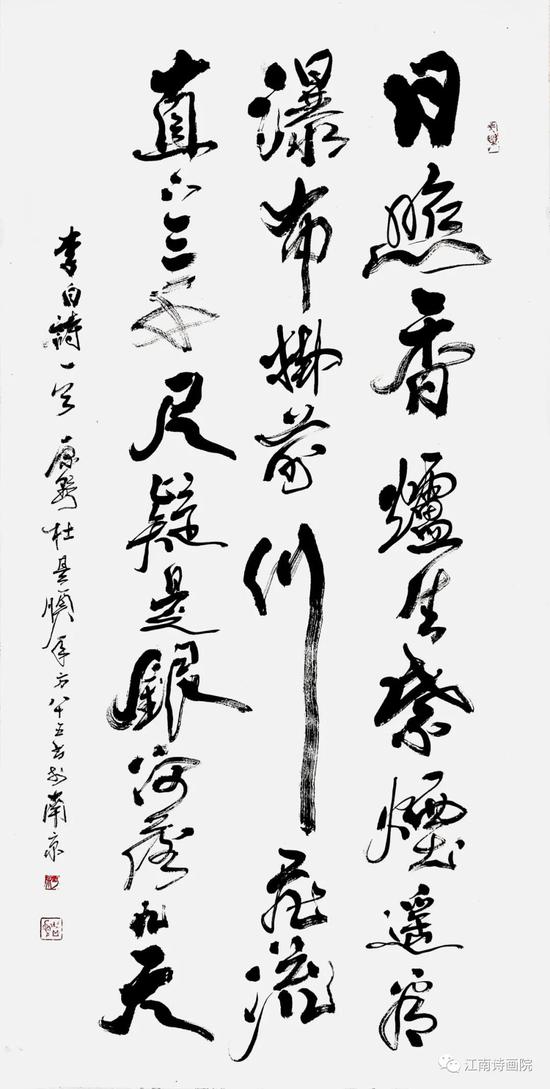 日照香爐生紫煙遙看
瀑布掛前川飛流
直下三千尺疑是銀河落九天
李白詩一首 杜 年方八十五书於南京
江南诗画院